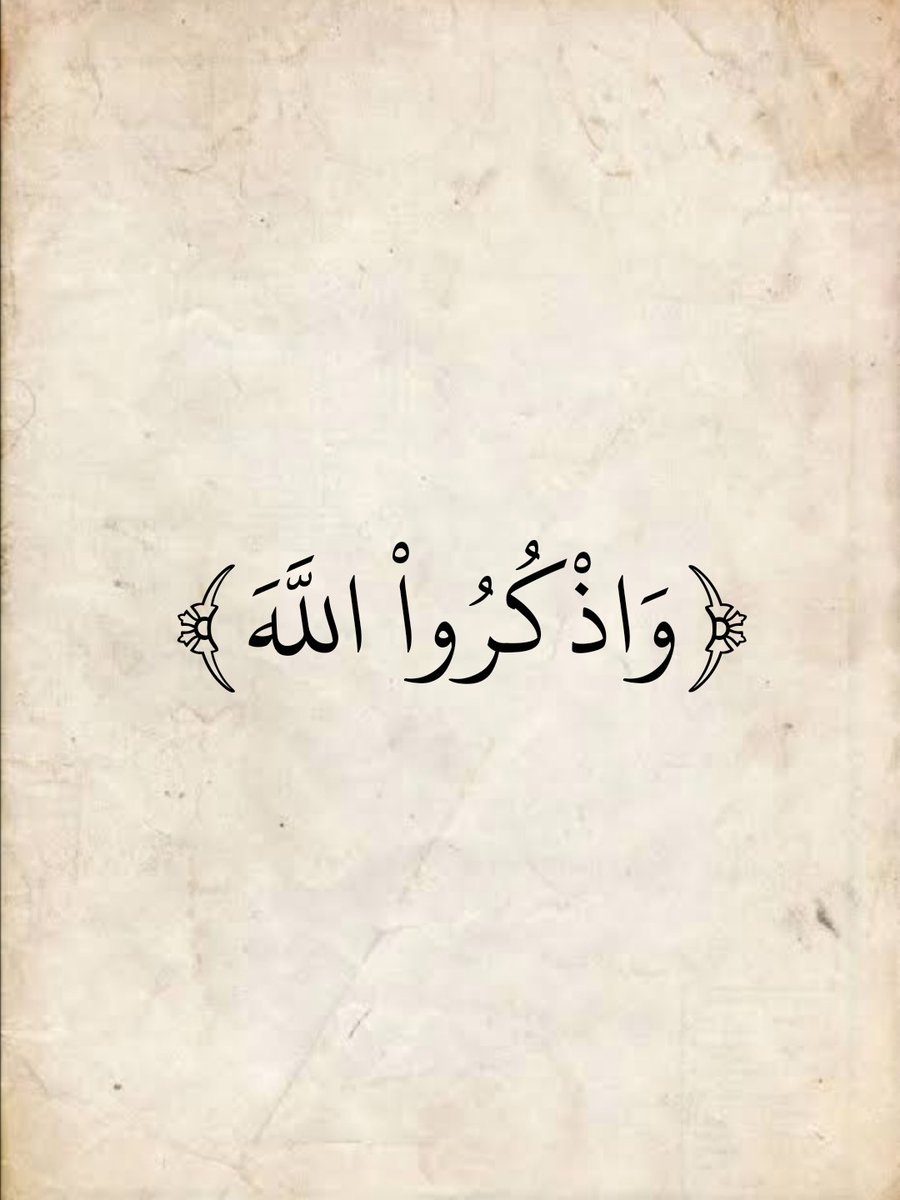 ﴿وَاذْكُرُواْ اللَّهَ﴾